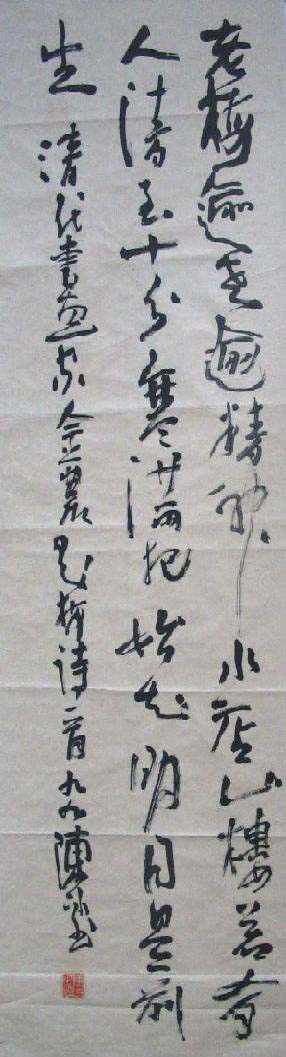 老梅逾老逾精神水店山樓若有
人清至十分寒滿把始知明月是前
身 清代書畫家金農咏梅诗一首九九陳